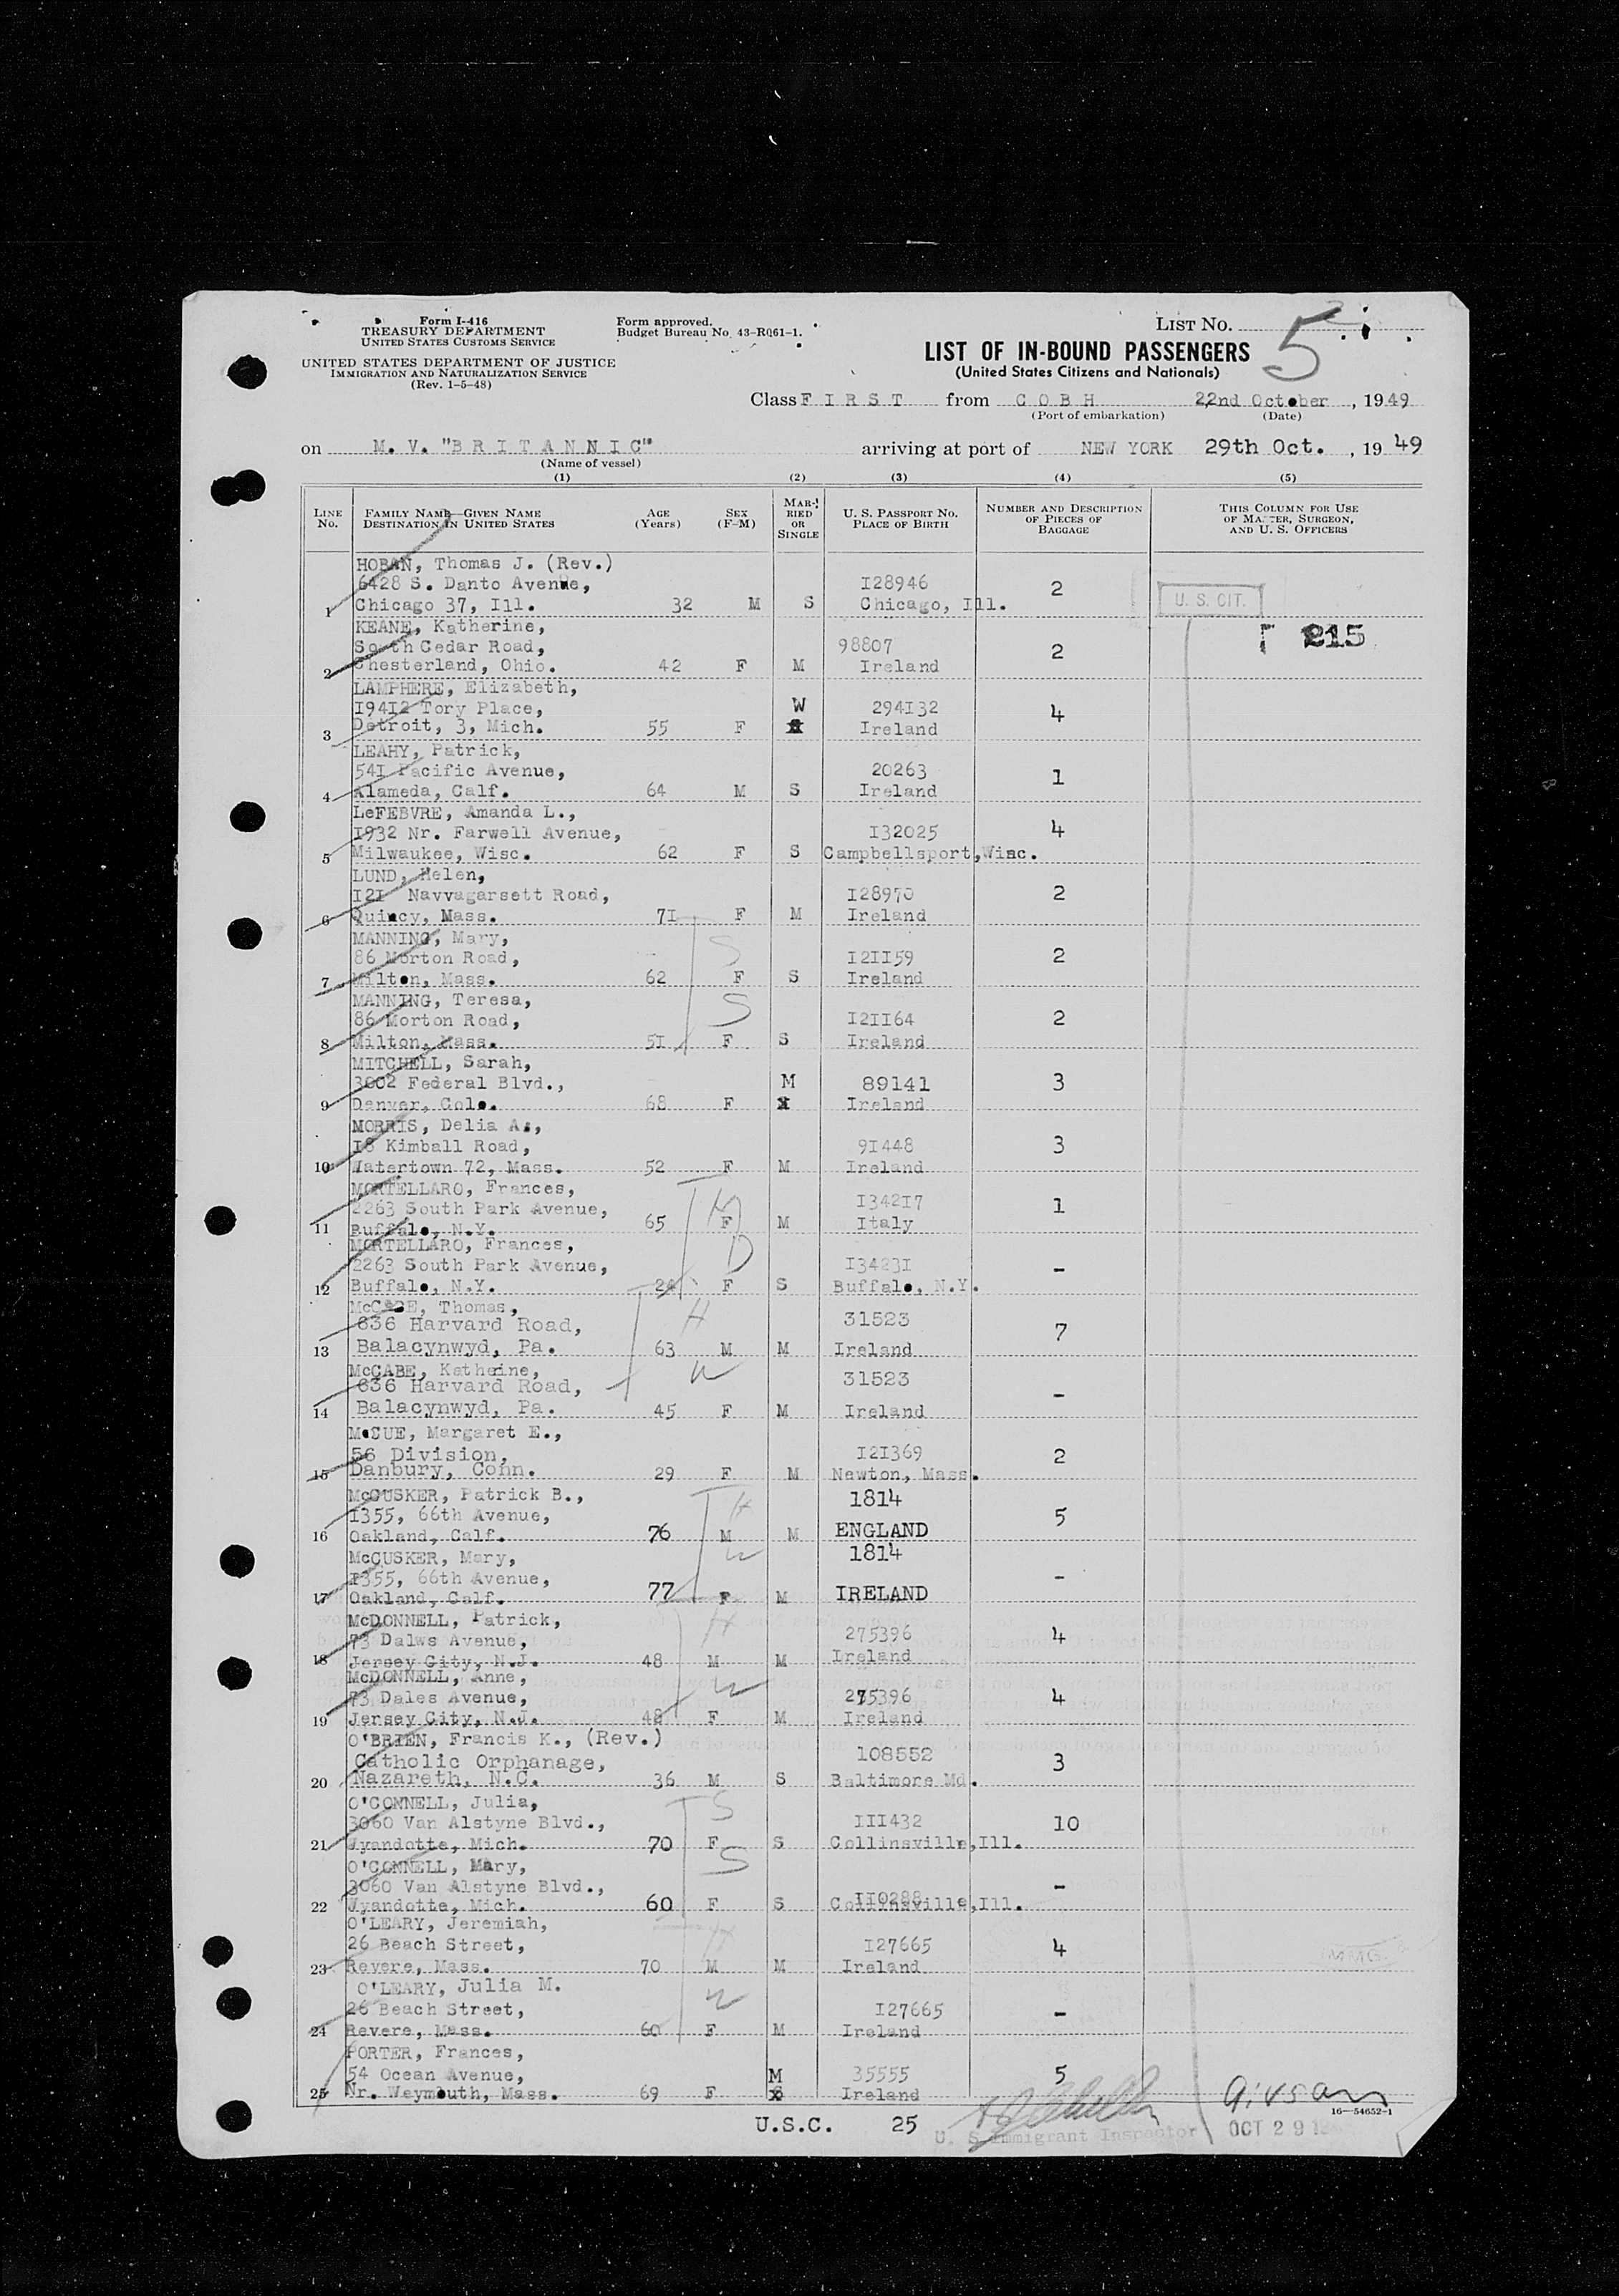 Form I-416
TREASURY DEPARTMENT
UNITED STATES CUSTOMS SERVICE
UNITED STATES DEPARTMENT OF JUSTICE
IMMIGRATION AND NATURALIZATION SERVICE
(Rev. 1-5-48)
Form approved.
Budget Bureau No. 43-R061-1.
LIST NO. 5
LIST OF IN-BOUND PASSENGERS
(United States Citizens and Nationals)
Class FIRST from COBH 22nd October, 1949
(Port of embarkation) (Date)
on M. V. "BRITANNIC" arriving at port of NEW YORK 29th Oct., 1949
(Name of vessel)
(1) (2) (3) (4) (5)
LINE NO. FAMILY NAME—GIVEN NAME DESTINATION IN UNITED STATES AGE (Years) SEX (F-M) MARRIED OR SINGLE U. S. PASSPORT NO. PLACE OF BIRTH NUMBER AND DESCRIPTION OF PIECES OF BAGGAGE THIS COLUMN FOR USE OF MASTER, SURGEON, AND U. S. OFFICERS
HOBAN, Thomas J. (Rev.)
6428 S. Danto Avenue, I28946 2 U. S. CIT.
1 Chicago 37, Ill. 32 M S Chicago, Ill.
215
KEANE, Katherine,
South Cedar Road, 98807 2
2 Chesterland, Ohio. 42 F M Ireland
LAMPHERE, Elizabeth,
I94I2 Tory Place, W 294I32 4
3 Detroit, 3, Mich. 55 F Ireland
LEAHY, Patrick,
54I Pacific Avenue, 20263 1
4 Alameda, Calf. 64 M S Ireland
LeFEBVRE, Amanda L.,
I932 Nr. Farwell Avenue, I32025 4
5 Milwaukee, Wisc. 62 F S Campbellsport, Wisc.
LUND, Helen,
I2I Navvagarsett Road, I28970 2
6 Quincy, Mass. 7I F M Ireland
MANNING, Mary, S
86 Morton Road, I2II59 2
7 Milton, Mass. 62 F S Ireland
MANNING, Teresa, S
86 Morton Road, I2II64 2
8 Milton, Mass. 5I F S Ireland
MITCHELL, Sarah,
3002 Federal Blvd., M 89141 3
9 Denver, Colo. 68 F Ireland
MORRIS, Delia A.,
I8 Kimball Road, 9I448 3
10 Watertown 72, Mass. 52 F M Ireland
MORTELLARO, Frances, M
2263 South Park Avenue, I342I7 1
11 Buffalo, N.Y. 65 F M Italy
MORTELLARO, Frances, D
2263 South Park Avenue, I3423I -
12 Buffalo, N.Y. 24 F S Buffalo, N.Y.
McCABE, Thomas, H
636 Harvard Road, 31523 7
13 Balacynwyd, Pa. 63 M M Ireland
McCABE, Katheine, W
636 Harvard Road, 31523 -
14 Balacynwyd, Pa. 45 F M Ireland
McCUE, Margaret E.,
56 Division, I2I369 2
15 Danbury, Conn. 29 F M Newton, Mass.
McCUSKER, Patrick B., H 1814
I355, 66th Avenue, 5
16 Oakland, Calf. 76 M M ENGLAND
McCUSKER, Mary, W 1814
I355, 66th Avenue, -
17 Oakland, Calf. 77 F M IRELAND
McDONNELL, Patrick, H
73 Dalws Avenue, 275396 4
18 Jersey City, N.J. 48 M M Ireland
McDONNELL, Anne, W
73 Dales Avenue, 275396 4
19 Jersey City, N.J. 48 F M Ireland
O'BRIEN, Francis K., (Rev.)
Catholic Orphanage, 108552 3
20 Nazareth, N.C. 36 M S Baltimore Md.
O'CONNELL, Julia, S
3060 Van Alstyne Blvd., III432 10
21 Wyandotte, Mich. 70 F S Collinsville, Ill.
O'CONNELL, Mary, S
3060 Van Alstyne Blvd., II0288 -
22 Wyandotte, Mich. 60 F S Collinsville, Ill.
O'LEARY, Jeremiah, H
26 Beach Street, I27665 4
23 Revere, Mass. 70 M M Ireland
O'LEARY, Julia M. W
26 Beach Street, I27665 -
24 Revere, Mass. 60 F M Ireland
PORTER, Frances,
54 Ocean Avenue, M 35555 5
25 Nr. Weymouth, Mass. 69 F Ireland
16—54652-1
U.S.C. 25 U. S. Immigrant Inspector OCT 29